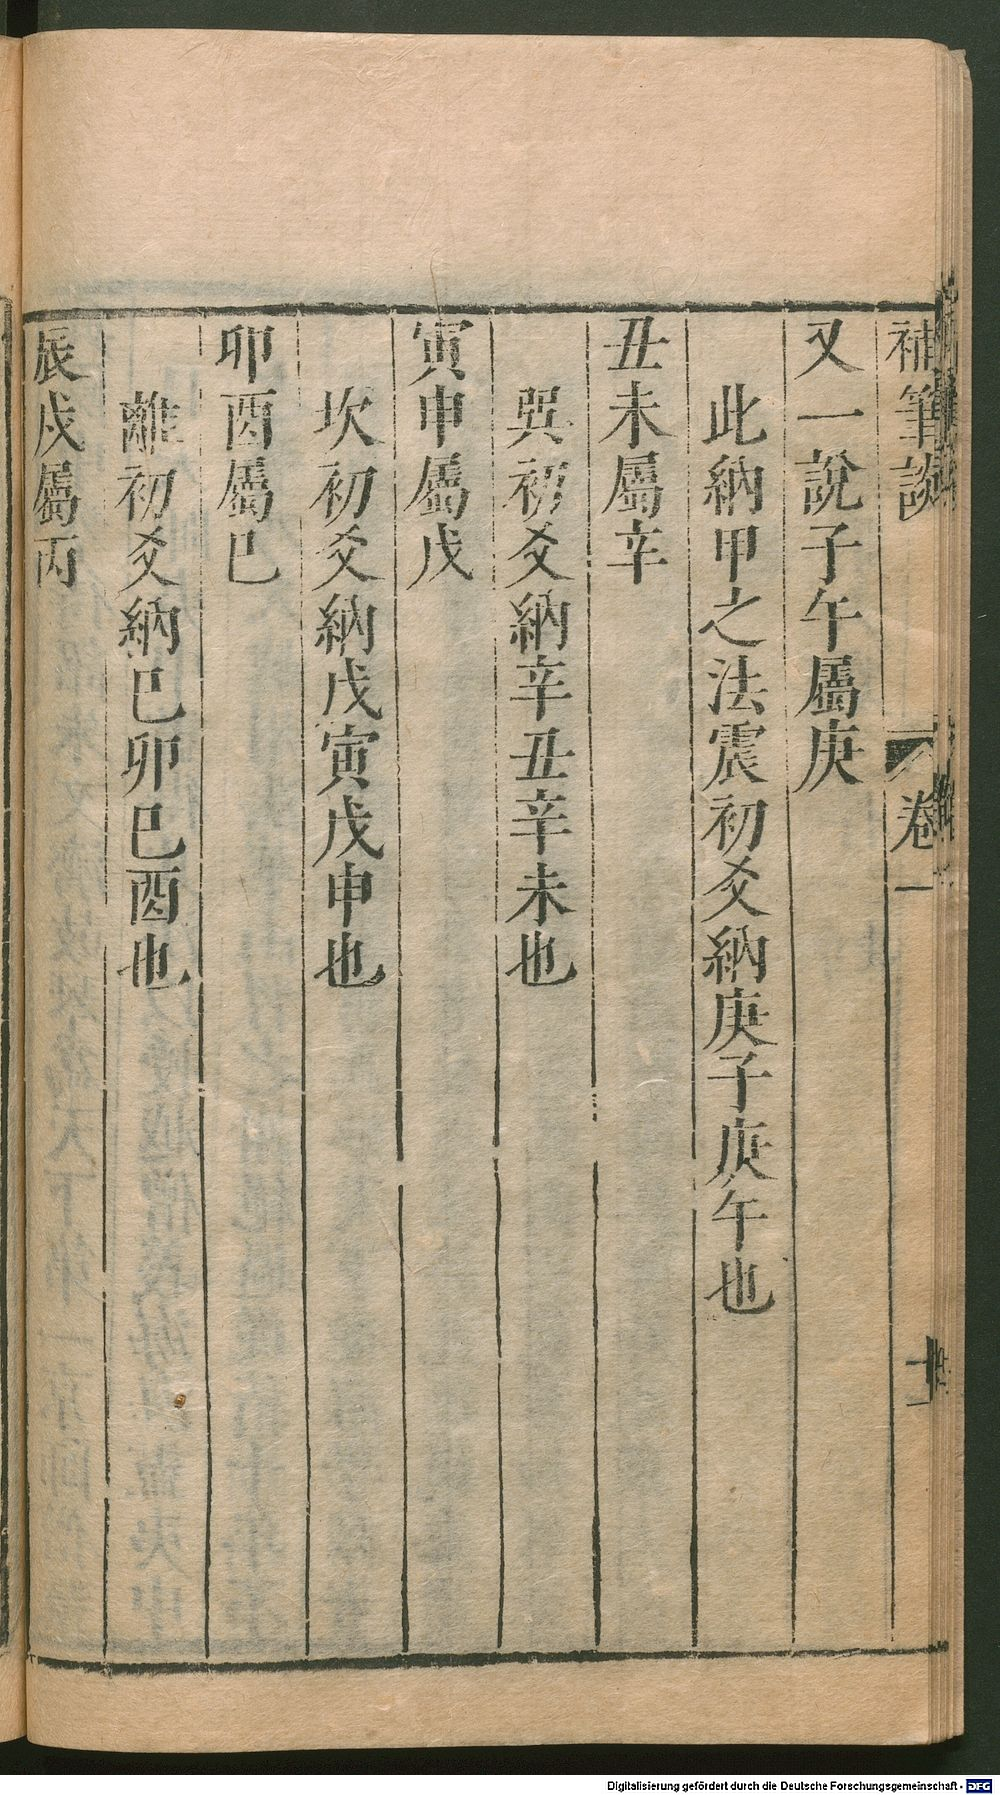 補筆談 卷一 十一
又一說子午屬庚
此納甲之法震初爻納庚子庚午也
丑未屬辛
巽初爻納辛丑辛未也
寅申屬戊
坎初爻納戊寅戊申也
卯酉屬巳
離初爻納巳卯巳酉也
辰戌屬丙
Digitalisierung gefördert durch die Deutsche Forschungsgemeinschaft - DFG